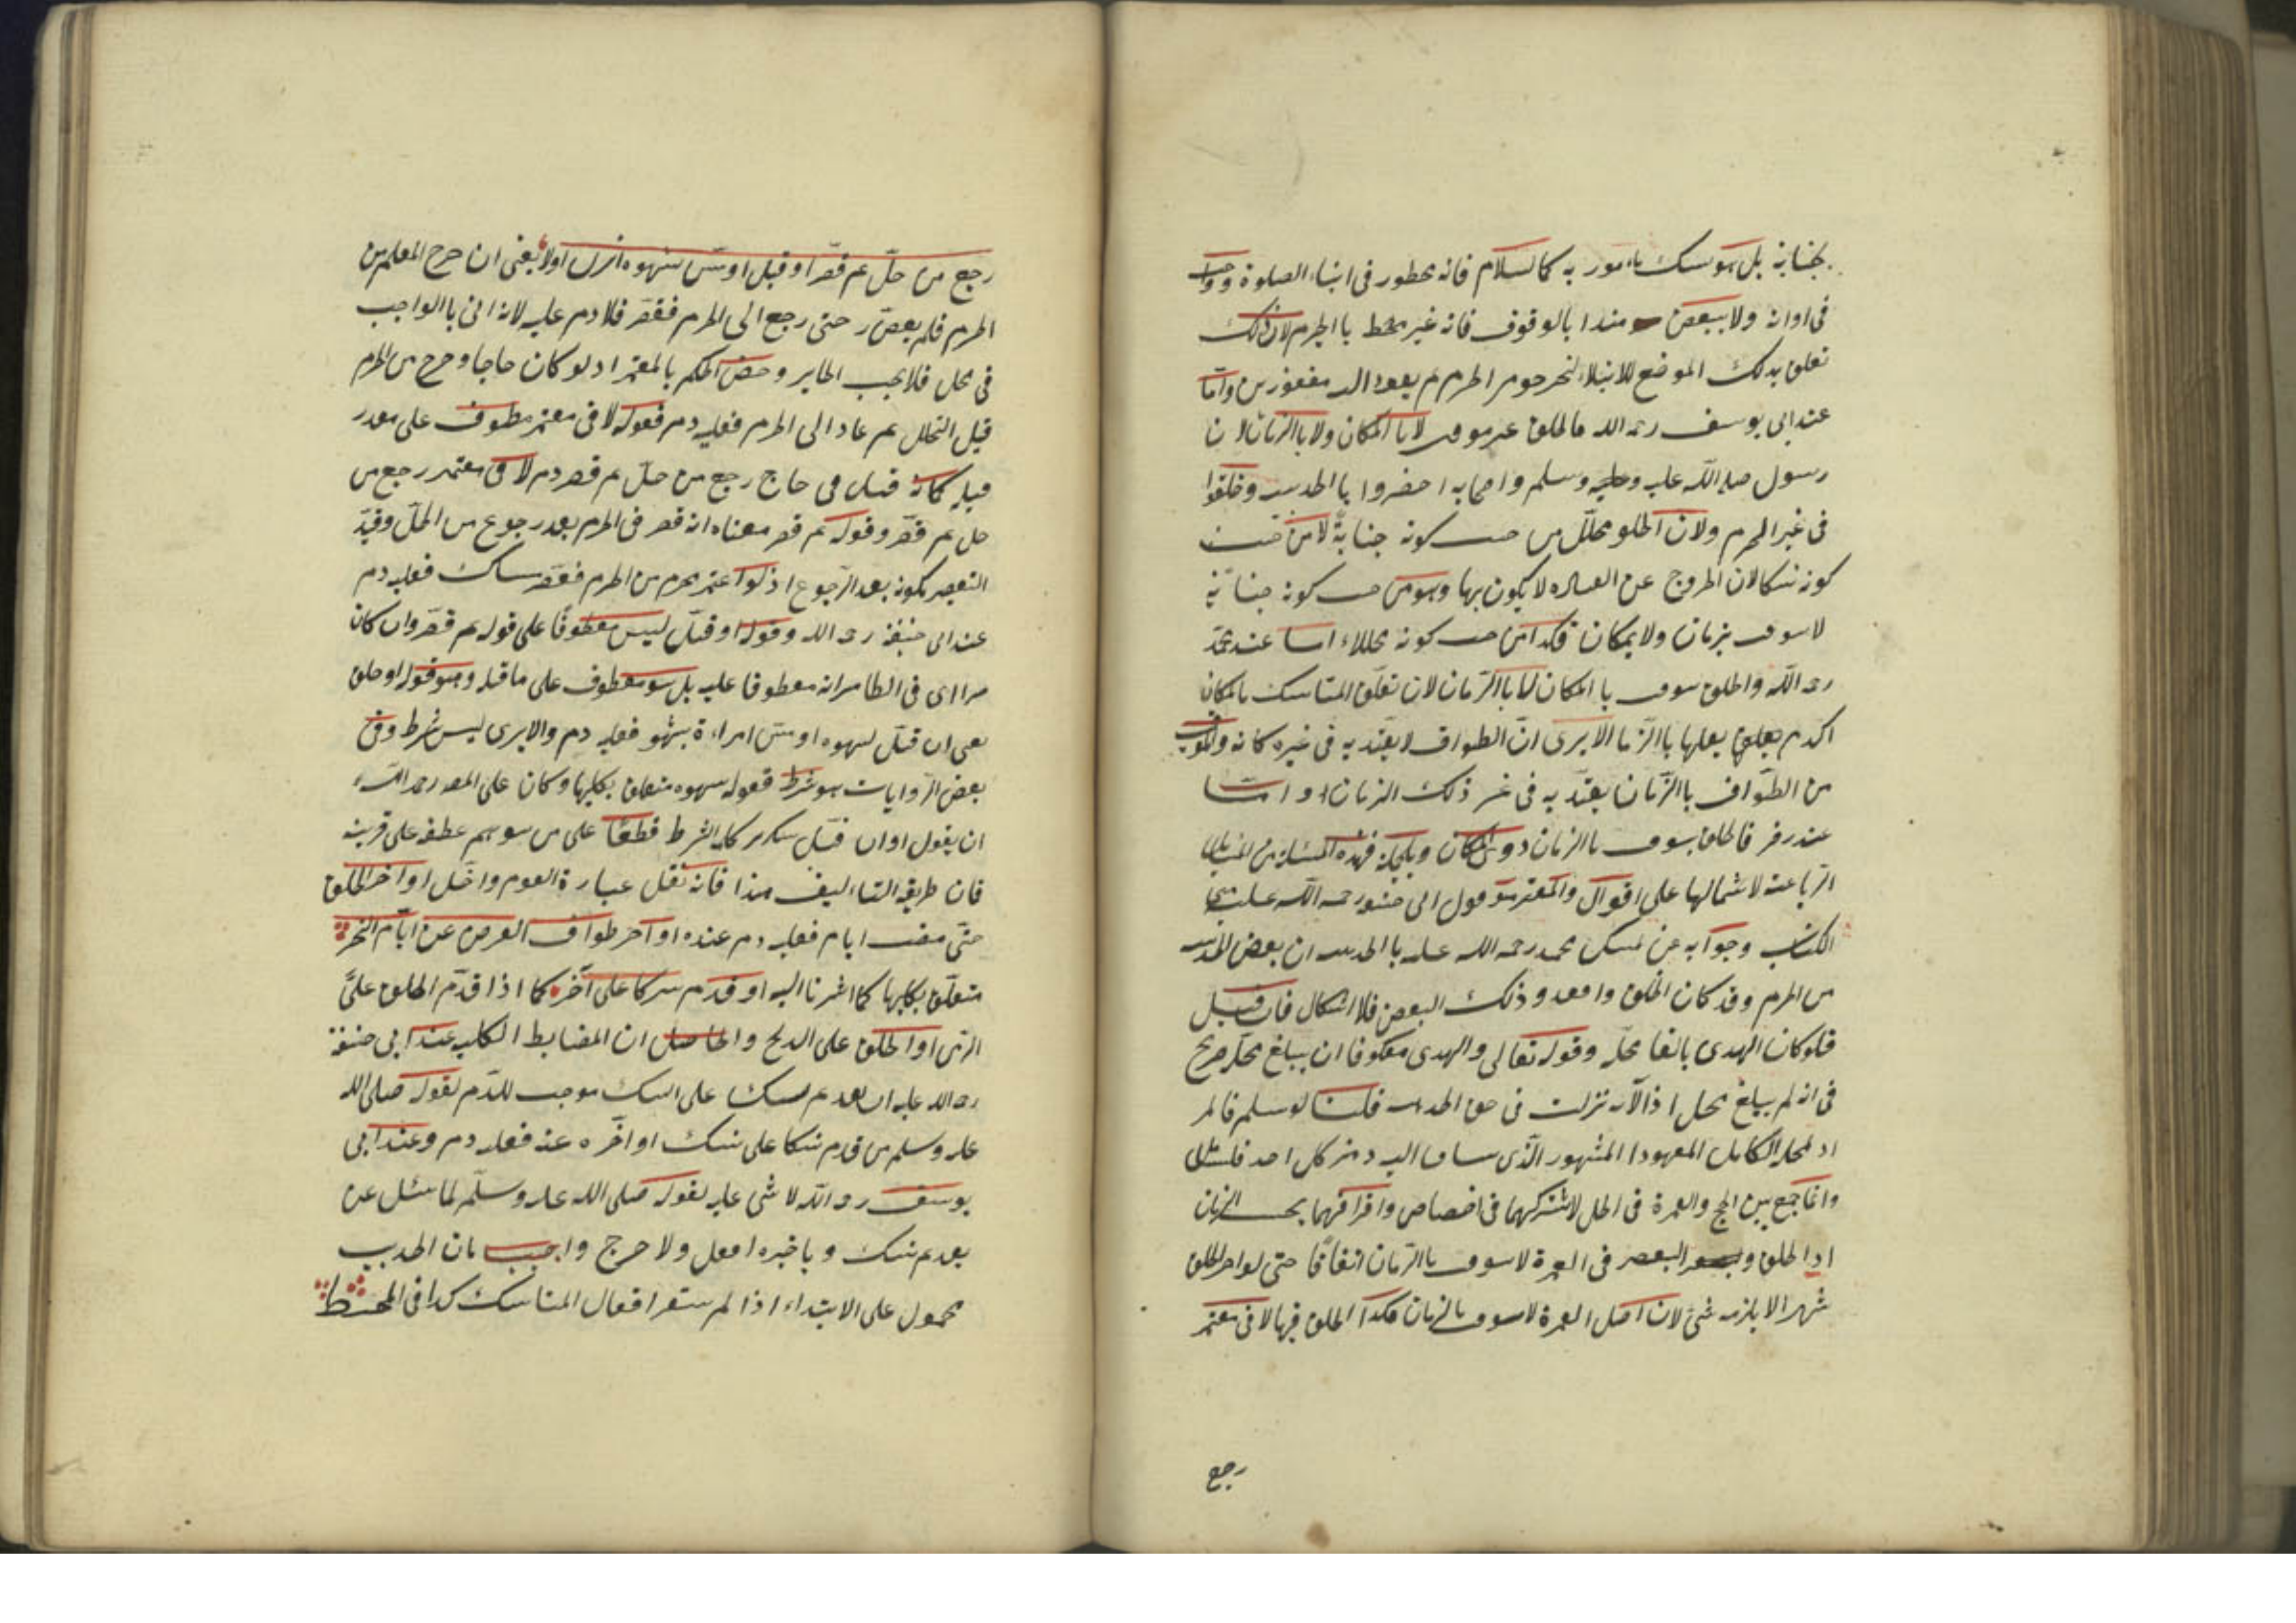 بجناية بل هو نسك مأمور به كالسلام فانه محظور فى اثناء الصلوة وواجب
فى اوانه ولا ينتقض هذا بالوقوف فانه غير مختط باالحرم لان ذلك
تعلق بذلك الموضع للابتلاء الحرم ثم يعود واما
عند ابى يوسف رحمه الله فالحلق غير موقت لا باالمكان ولا باالزمان لان
رسول صلى الله عليه وسلم واصحابه احضروا باالحديبية وحلقوا
فى غير الحرم ولان الحلق محلل من حيث كونه جناية لا من حيث
كونه نسكا لان الخروج عن العبادة لا يكون بها وهو من حيث كونه جناية
لا يتوقت بزمان ولا بمكان فكذا من حيث كونه محللا واما عند محمد
رحمه الله والحلق يتوقت باالمكان لا باالزمان لان تعلق المناسك بالمكان
اكد من تعلقها باالزمان الا يرى ان الطواف لا يعتد به فى غير مكانه والموقت
من الطواف باالزمان يعتد به فى غير ذلك الزمان واما
عند زفر فالحلق يتوقت باالزمان دون المكان وبالجملة فهذه المسئلة من المسائل
الرباعية لاشتمالها على اقوال والمعتبر هو قول ابى حنيفة رحمة الله عليه
الكتاب وجوابه عن تمسك محمد رحمه الله عليه باالحديبية ان بعض الحديبية
من الحرم وقد كان الحلق واقعه وذلك البعض فلا اشكال فان قيل
فلو كان الهدى بالغا محله وقوله تعالى والهدى معكوفا ان يبلغ محله صريح
فى انه لم يبلغ محله اذ الآية نزلت فى حق الحديبية قلنا لو سلم فالمراد
المحل الكامل المعهود المشهور الذى يساق اليه
وانما جمع بين الحج والعمرة فى الحل لاشتراكهما فى اختصاص وافتراقهما بحسب الزمان
اذا الحلق والتقصير فى العمرة لا يتوقت باالزمان اتفاقا حتى لو اخر الحلق
شهرا لا يلزمه شئ لان اصل العمرة لا يتوقت بالزمان فكذا الحلق فيها لا فى معتمر
رجع
رجع من حل ثم قصر او قبل او مس بشهوة انزل اولا يعنى ان خرج المعتمر من
الحرم فلم يقصر حتى رجع الى الحرم فقصر فلا دم عليه لانه اتى باالواجب
فى محل فلا يجب الجابر وخص الحكم بالمعتمر اذ لو كان حاجا وخرج من الحرم
قبل التحلل ثم عاد الى الحرم فعليه دم فقوله لا فى معتمر معطوف على مقدر
قبله كانه قيل فى حاج رجع من حل ثم قصر دم لا فى معتمر رجع من
حل ثم قصر وقوله ثم قصر معناه انه قصر فى الحرم بعد رجوع من الحل وقيد
التقصير بكونه بعد الرجوع اذ لو اعتمر بحرم من الحرم فقصر هناك فعليه دم
عند ابى حنيفة رحمه الله وقوله او قبل ليس معطوفا على قوله ثم قصر وان كان
يترااى فى الظاهر انه معطوفا عليه بل هو معطوف على ما قبله وهو قوله او حلق
يعنى ان قبل بشهوة او مس امراءة بشهوة فعليه دم والانزال ليس بشرط وفى
بعض الروايات هو شرط فقوله بشهوة متعلق بكليهما وكان على المص رحمه الله
ان يقول او ان قبل بتكرير كلمة الشرط قطعا على من يتوهم عطفه على قرينه
فان طريقة التاءليف هذا فانه نقل عبارة القوم واخل او اخر الحلق
حتى مضت ايام فعليه دم عنده او اخر طواف الفرض عن ايام النحر
متعلق بكليهما كما اشرنا اليه او قدم نسكا على آخر كما اذا قدم الحلق على
الرمى او الحلق على الذبح والحاصل ان الضابط الكلى عند ابى حنيفة
رحمه الله عليه ان تقديم نسك على نسك موجب للدم لقوله صلى الله
عليه وسلم من قدم نسكا على نسك او اخره عنه فعليه دم وعند ابى
يوسف رحمه الله لا شئ عليه لقوله صلى الله عليه وسلم لما سئل عن
تقديم نسك وتاخيره افعل ولا حرج واجيب بان الحديث
محمول على الابتداء اذا لم يستقر افعال المناسك كذا فى المحيط